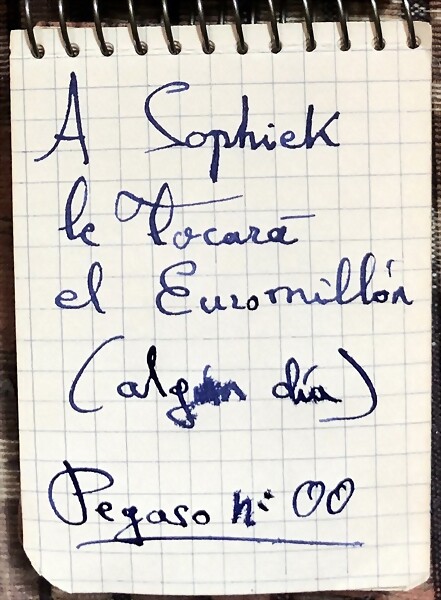 A Sophiek
le tocará
el Euromillón
(algún día)
Pegaso nº 00